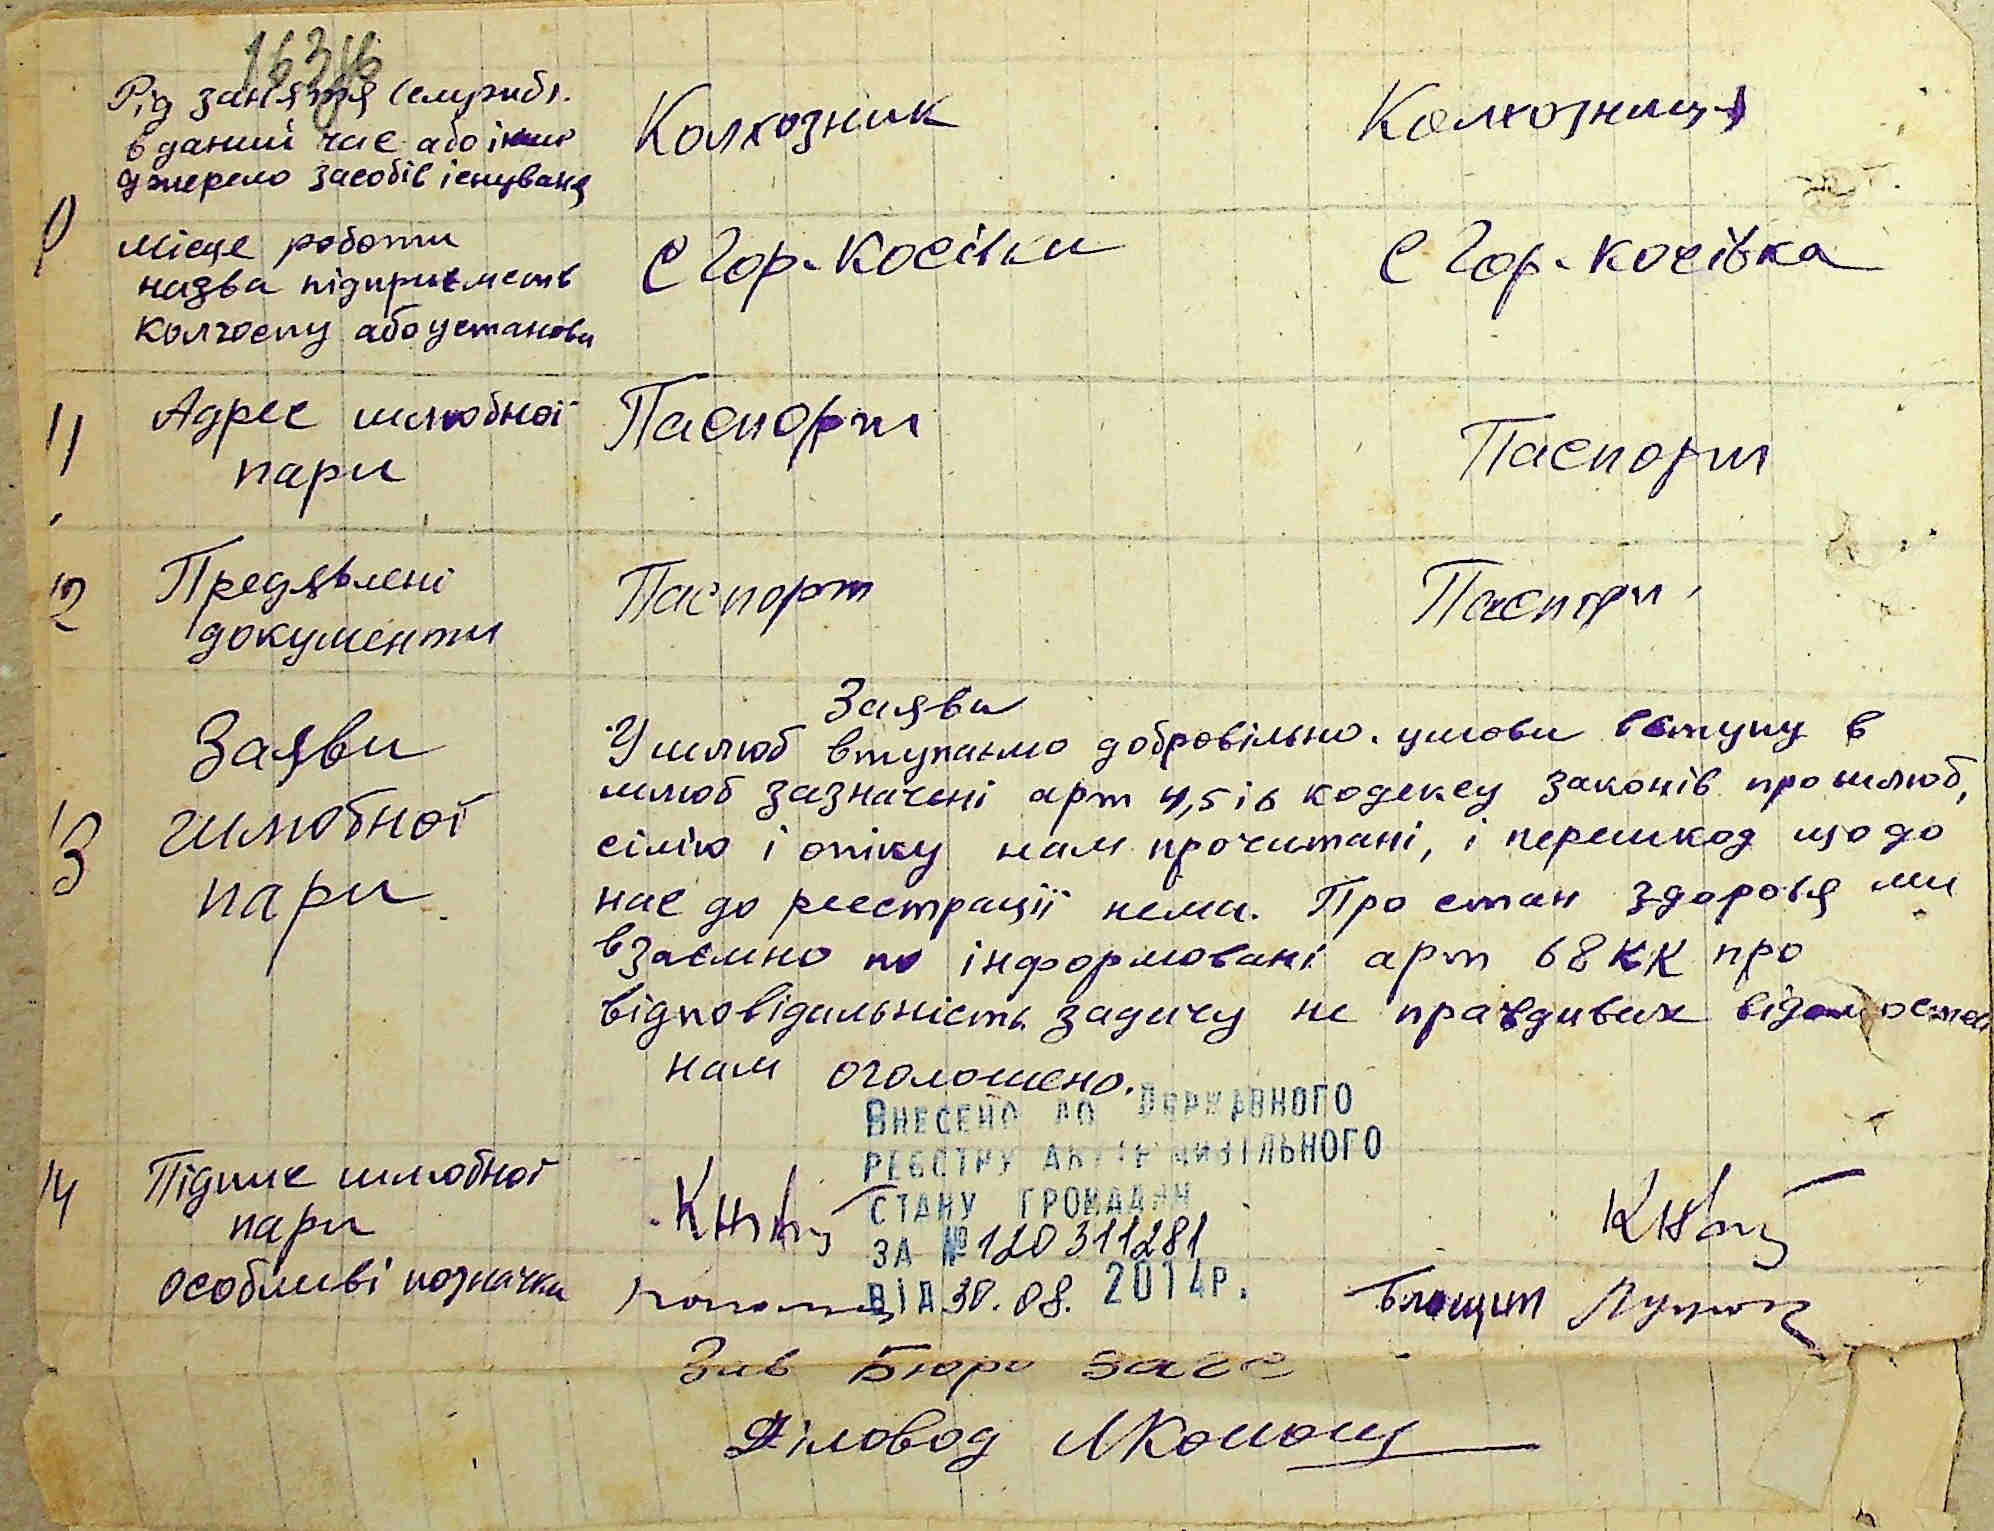 Рід заняття (служб).
Колхозник
Колхозниця
в даний час або інше
джерело засобів існуваня
Місце роботи
с Гор-Косівки
с Гор-Косівка
назва підприємств
колгоспу або установи
11 Адрес шлюбної
Паспорт
Паспорт
пари
12 Предявлені
Паспорт
Паспорт
документи
Заяви
13 Заяви
шлюбної
пари
У шлюб вступаємо добровільно. умови вступу в
шлюб зазначені арт 4,5 і 6 кодексу законів про шлюб,
сімію і опіку нам прочитані, і перешкод що до
нас до реєстрації нема. Про стан здоровя ми
взаємно по інформовані арт 68 КК про
відповідальність задачу не правдивих відомостей
нам оголошено.
Внесено до Державного
реєстру актів цивільного
стану громадян
за № 120311281
від 30.08. 2014р.
14 Підпис шлюбної
пари
особливі позначки
Зав Бюро загс
Діловод